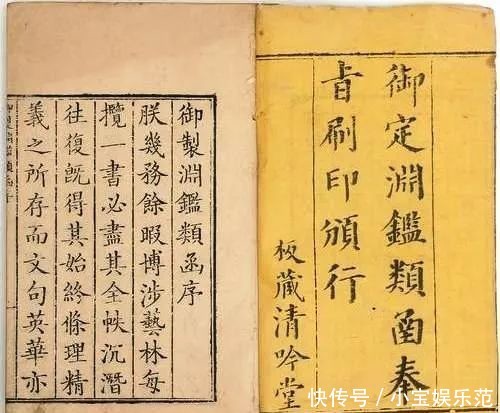 御定淵鑑類函奉
旨刷印頒行
板藏清吟堂
御製淵鑑類函序
朕幾務餘暇博涉藝林每
攬一書必盡其全帙沉潛
往復既得其始終條理精
義之所存而文句英華亦
快传号/小宝娱乐范